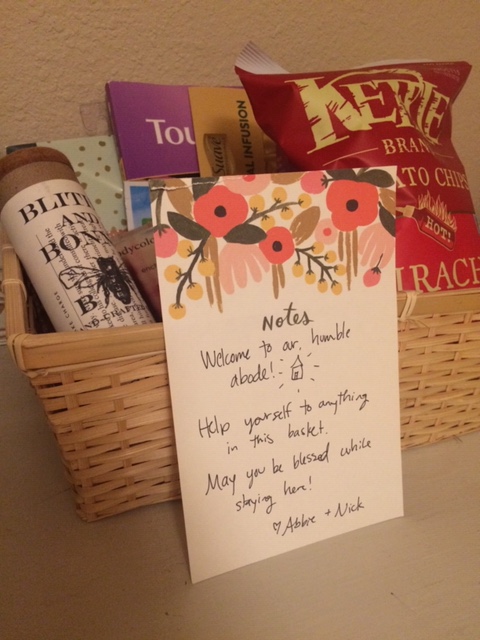 KETTLE
BRAND
TATO CHIPS
HOT!
IRACH
Tou
Suave
AL INFUSION
BLITH
AND
BONN
B
AND-CRAFTED
bodycolo
Notes
Welcome to our humble
abode!
Help yourself to anything
in this basket.
May you be blessed while
staying here!
♡ Abbie + Nick